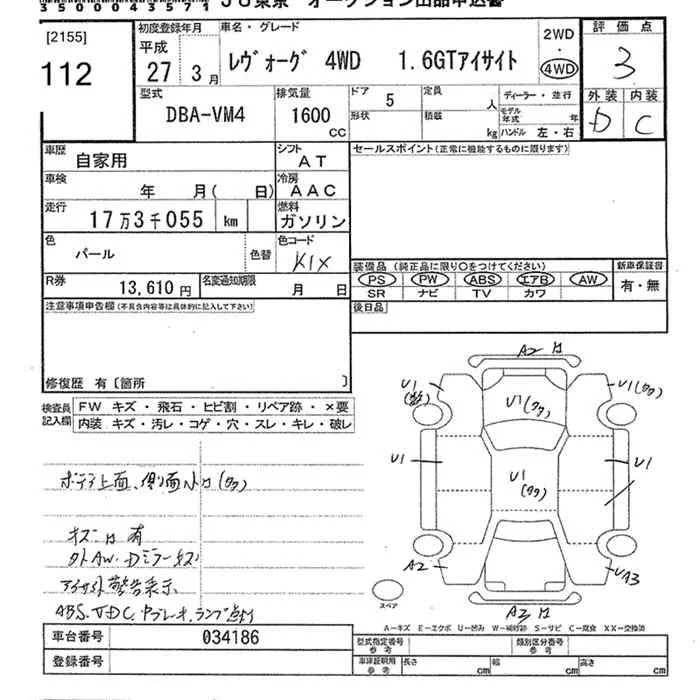 35000435 71 JU東京 オークション出品申込書
[2155]
112
初度登録年月
平成
27 3月
車名・グレード
レヴォーグ 4WD 1.6GTアイサイト
2WD
・
4WD
評価点
3
型式
DBA-VM4
排気量
1600
CC
ドア
5
定員
人
ディーラー・並行
形状
積載
kg
モデル年式
年
ハンドル 左・右
外装 内装
D C
車歴
自家用
シフト
AT
セールスポイント(正常に機能するものに限ります)
車検
年 月( 日)
冷房
AAC
走行
17万3千055 km
燃料
ガソリン
色
パール
色替
色コード
K1X
装備品(純正品に限り○をつけてください)
新車保証書
PS PW ABS エアB AW
SR ナビ TV カワ
有・無
R券
13,610円
名変通知期限
月 日
後日品
注意事項申告欄(不具合内容等は具体的に記入して下さい)
修復歴 有〔箇所 〕
検査員
記入欄
FW キズ・飛石・ヒビ割・リペア跡・×要
内装 キズ・汚レ・コゲ・穴・スレ・キレ・破レ
ボデ上面、側面小凹(タタ)
キズ凹有
外AW.Dミラーキズ
アイサイト警告表示
ABS.VDC.
A2 凹
U1
U1(タタ)
U1(タタ)
U1
U1(タタ)
U1
A2
UA3
A3 凹
スペア
A-キズ E-エクボ U-凹み W-補修跡 S-サビ C-腐食 XX-交換済
車台番号
034186
登録番号
型式指定番号
参考
類別区分番号
参考
車庫証明用
参考
長さ cm
幅 cm
高さ cm